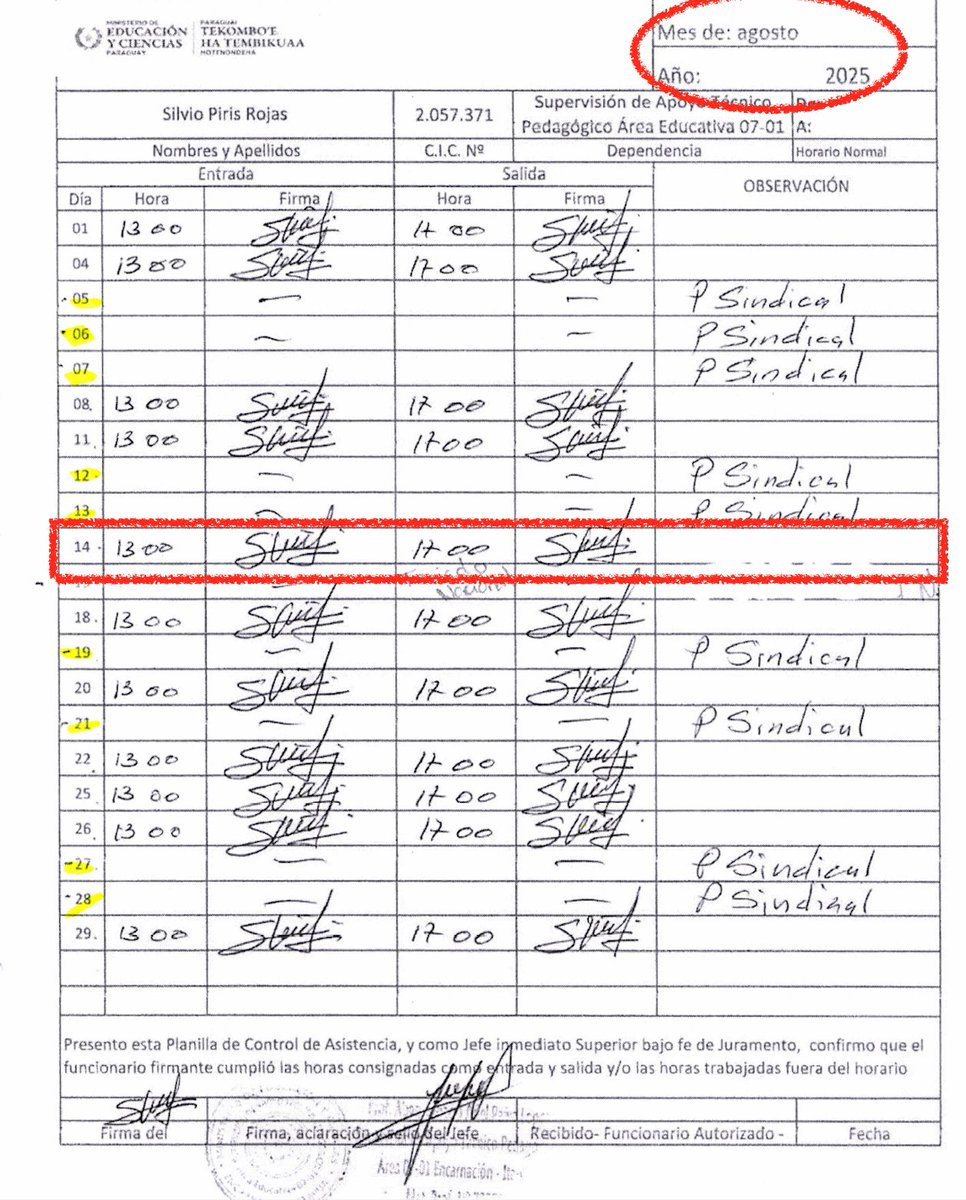 MINISTERIO DE
EDUCACIÓN
Y CIENCIAS
PARAGUAY
PARAGUAI
TEKOMBO'E
HA TEMBIKUAA
MOTENONDEHA
Mes de: agosto
Año: 2025
Silvio Piris Rojas 2.057.371 Supervisión de Apoyo Técnico
Pedagógico Área Educativa 07-01 A:
Nombres y Apellidos C.I.C. Nº Dependencia Horario Normal
Entrada Salida OBSERVACIÓN
Día Hora Firma Hora Firma
01 13 00 17 00
04 13 00 17 00
05 — — P Sindical
06 — — P Sindical
07 P Sindical
08 13 00 17 00
11 13 00 17 00
12 — — P Sindical
13 — — P Sindical
14 13 00 17 00
Feriado
Nacional
18 13 00 17 00
19 — — P Sindical
20 13 00 17 00
21 — — P Sindical
22 13 00 17 00
25 13 00 17 00
26 13 00 17 00
27 — — P Sindical
28 — — P Sindical
29 13 00 17 00
Presento esta Planilla de Control de Asistencia, y como Jefe inmediato Superior bajo fe de Juramento, confirmo que el
funcionario firmante cumplió las horas consignadas como entrada y salida y/o las horas trabajadas fuera del horario
Firma del Firma, aclaración y sello del Jefe Recibido- Funcionario Autorizado - Fecha
Encarnación